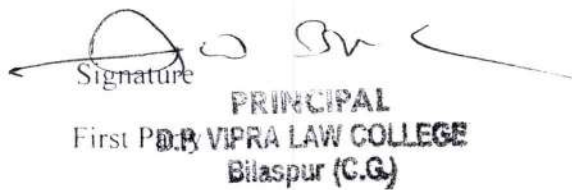 Signature
PRINCIPAL
First Party D.P. VIPRA LAW COLLEGE
Bilaspur (C.G.)